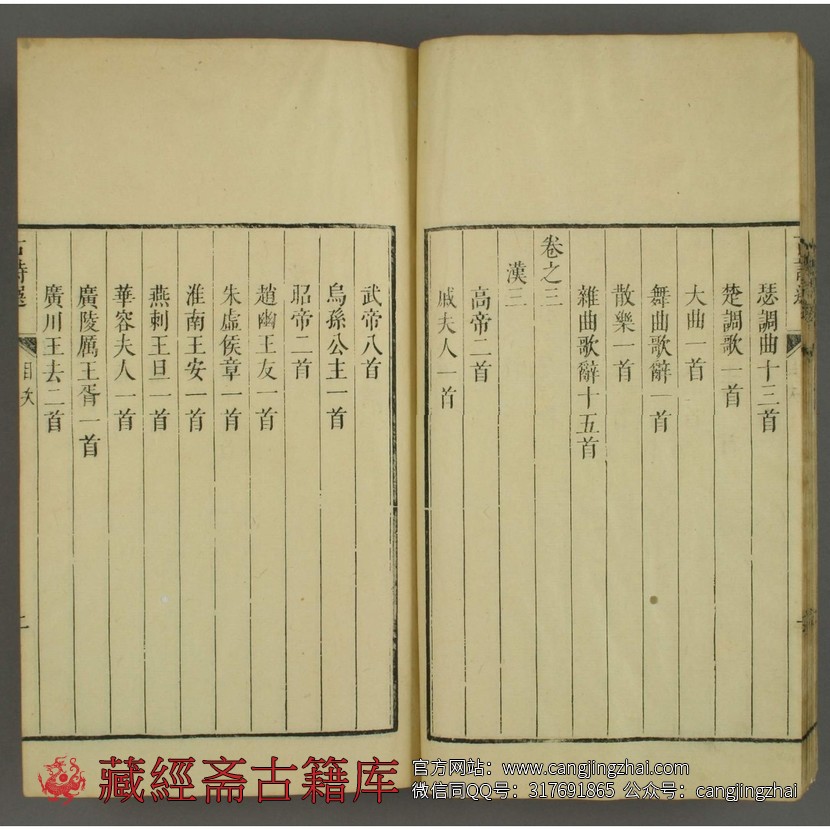 瑟調曲十三首
楚調歌一首
大曲一首
舞曲歌辭一首
散樂一首
雜曲歌辭十五首
卷之三
漢三
高帝二首
戚夫人一首
武帝八首
烏孫公主一首
昭帝二首
趙幽王友一首
朱虛侯章一首
淮南王安一首
燕刺王旦一首
華容夫人一首
廣陵厲王胥一首
廣川王去二首
古詩選
目次
藏經斋古籍库
官方网站：www.cangjingzhai.com
微信同QQ号：317691865 公众号：cangjingzhai